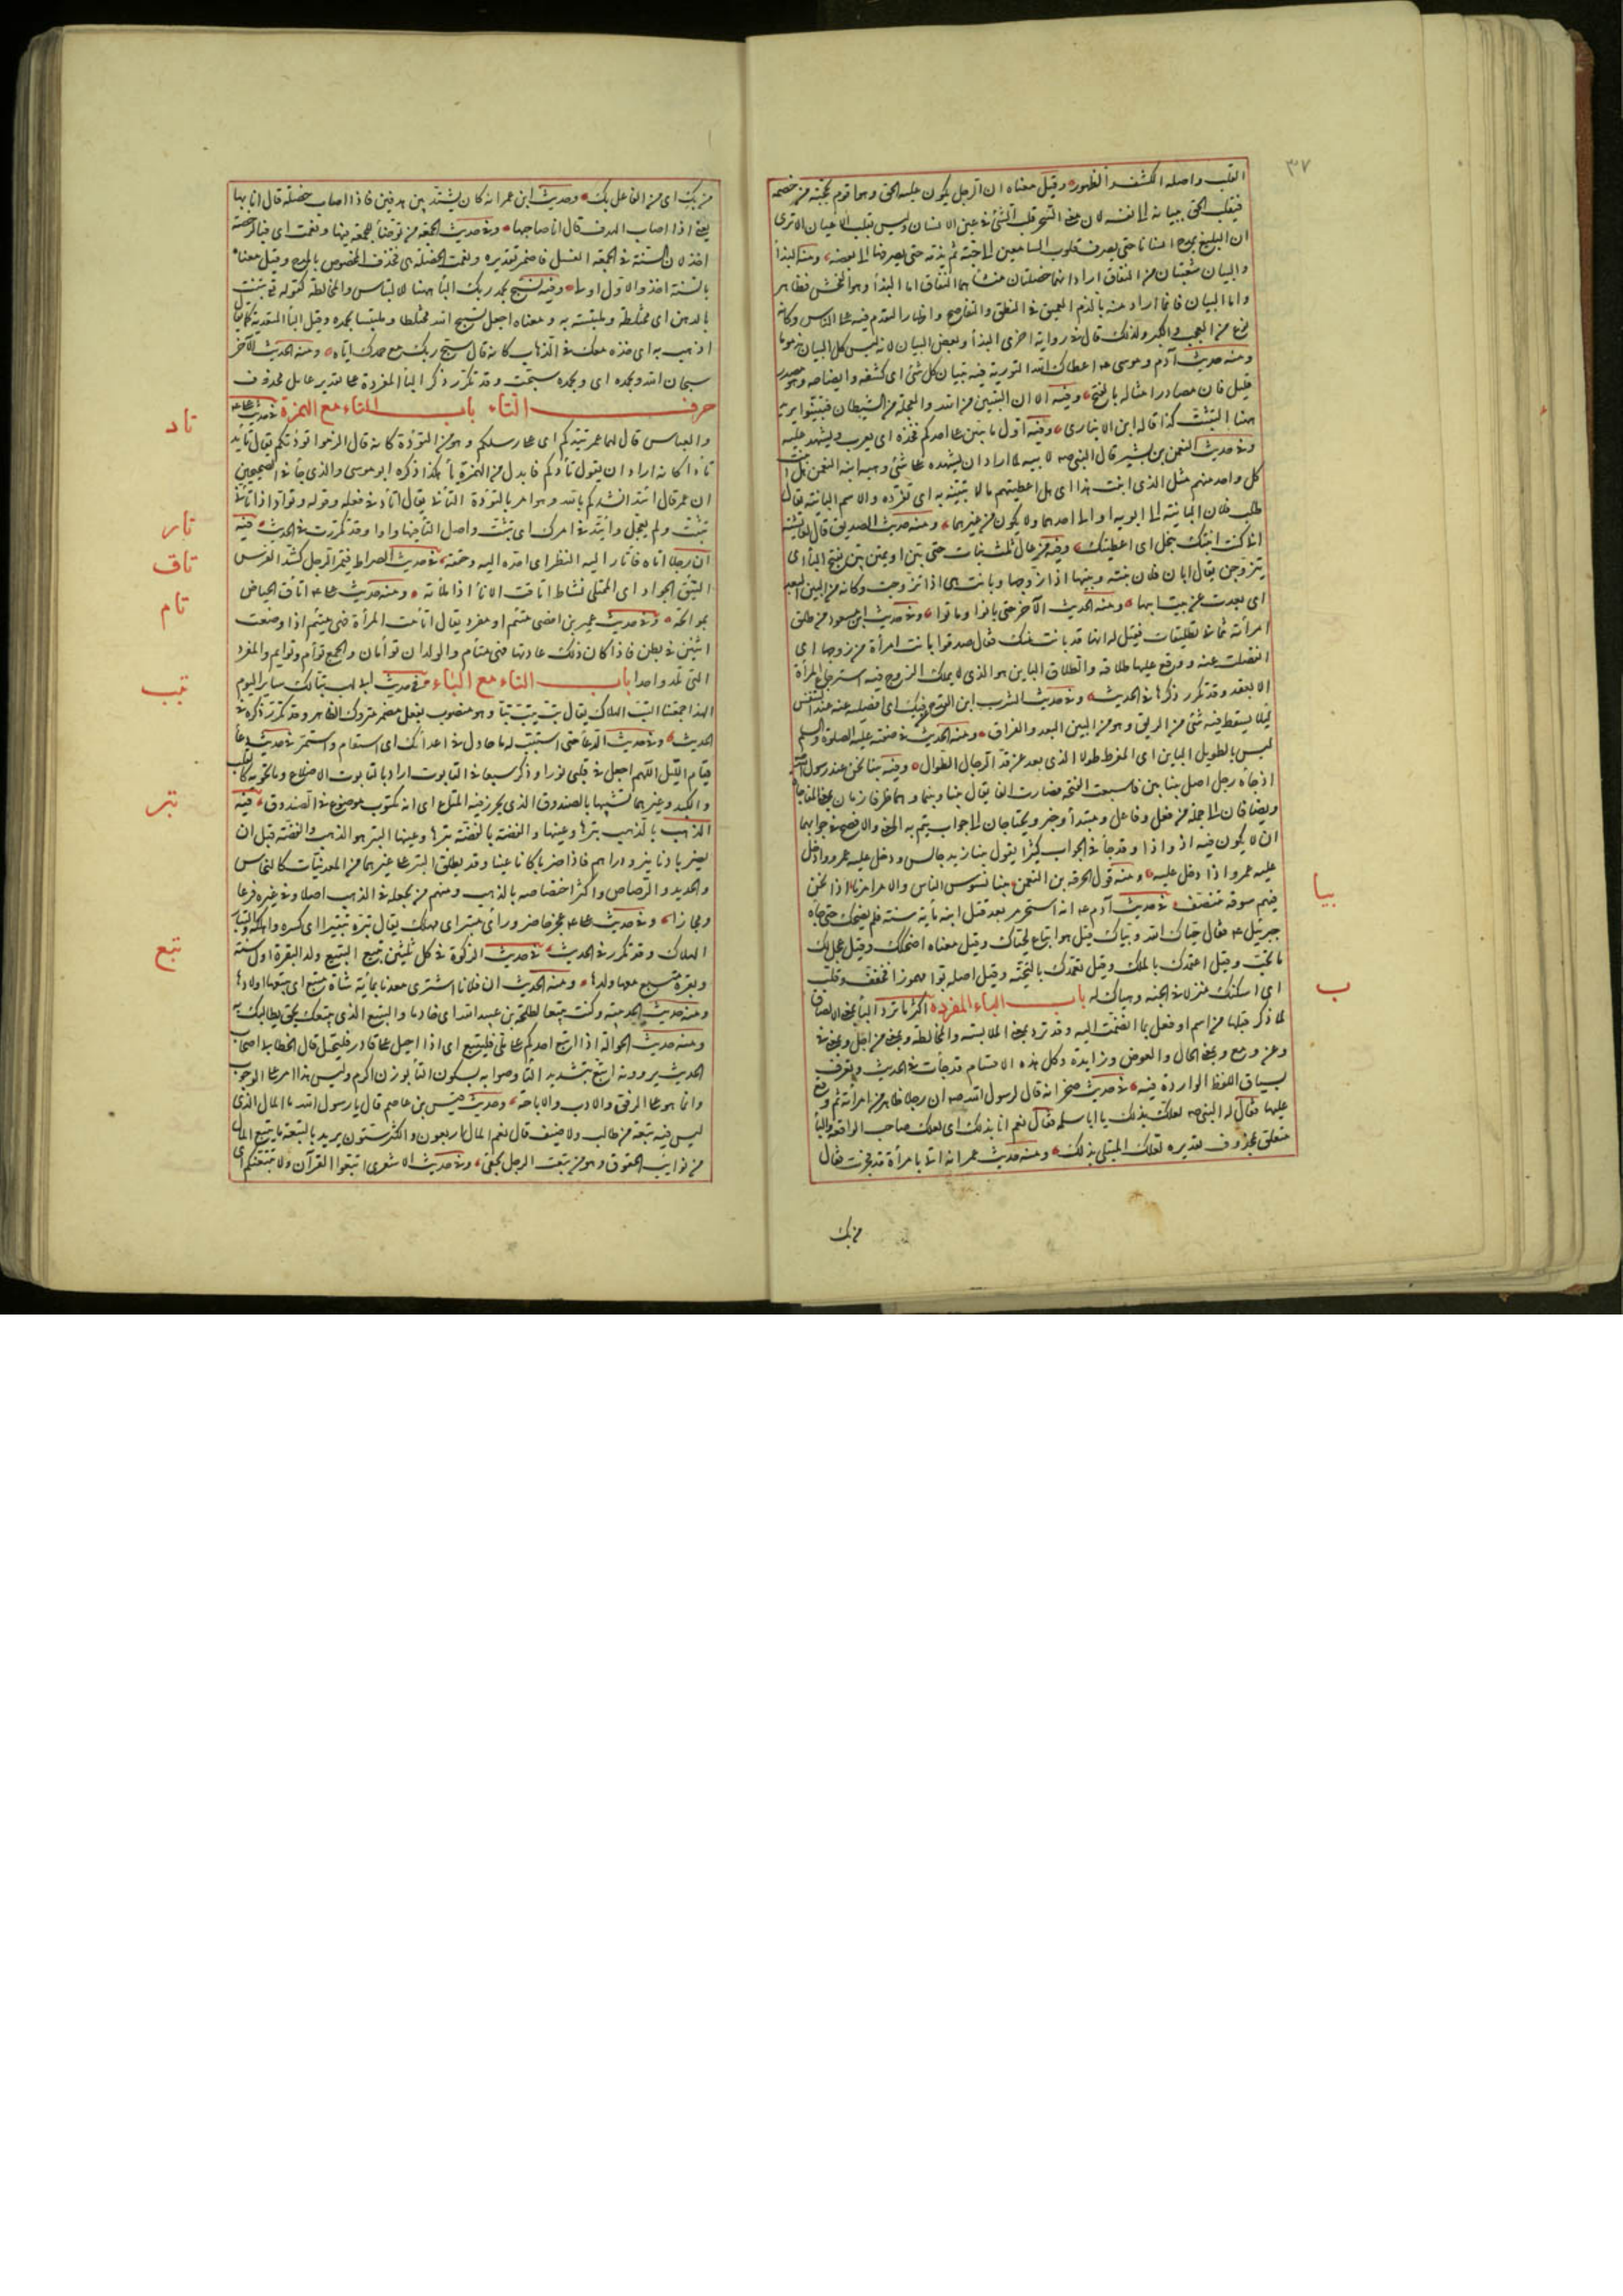 ٣٧
القلب واصله الكشف والظهور وقيل معناه ان الرجل يكون عليه الحق وهو اقوم بحجته من خصمه
فيقلب الحق ببيانه الى نفسه لان معنى السحر قلب الشئ في عين الانسان وليس بقلب الاعيان الا ترى
ان البليغ يمدح انسانا حتى يصرف قلوب السامعين الى حبه ثم يذمه حتى يصرفها الى بغضه ومنه البذأ
والبيان شعبتان من النفاق اراد انهما خصلتان منشأهما النفاق اما البذأ وهو الفحش فظاهر
واما البيان فانما اراد منه بالذم التعمق في النطق والتفاصح واظهار التقدم فيه على الناس وكانه
نوع من العجب والكبر ولذلك قال في رواية اخرى البذأ وبعض البيان لانه ليس كل البيان مذموما
ومنه حديث آدم وموسى عم اعطاك الله التورية فيه تبيان كل شئ اى كشفه وايضاحه وهو مصدر
قليل فان مصادر امثاله بالفتح وفيه الا ان التبين من الله والعجلة من الشيطان فتبينوا يريد
ههنا التثبت كذا قاله ابن الانبارى وفيه اول ما يبين على احدكم فخذه اى يعرب ويشهد عليه
وفي حديث النعمن بن بشير قال النبي صم لابيه لما اراد ان يشهده على شئ وهبه ابنه النعمن هل ابنت
كل واحد منهم مثل الذى ابنت هذا اى هل اعطيتهم مالا تبينه به اى تفرده والاسم البائنة يقال
طلب فلان البائنة الى ابويه او الى احدهما ولا يكون من غيرهما ومنه حديث الصديق قال لعايشة
انى كنت ابنتك بنحل اى اعطيتك وفيه من عال ثلث بنات حتى يبن او يمتن يبن بفتح الياء اى
يتزوجن يقال ابان فلان بنته وبينها اذا زوجها وبانت هى اذا تزوجت وكانه من البين البعد
اى بعدت عن بيت ابيها ومنه الحديث الآخر حتى بانوا او ماتوا وفي حديث ابن مسعود من طلق
امرأته ثمانى تطليقات فقيل له انها قد بانت منك فقال صدقوا بانت المرأة من زوجها اى
انفصلت عنه ووقع عليها طلاقه والطلاق الباين هو الذى لا يملك الزوج فيه استرجاع المرأة
الا بعقد وقد تكرر ذكرها في الحديث وفي حديث الشرب ابن القدح عن فيك اى افصله عنه عند التنفس
ليلا يسقط فيه شئ من الريق وهو من البين البعد والفراق ومنه الحديث في صفته عليه الصلوة والسلم
ليس بالطويل الباين اى المفرط طولا الذى بعد عن قد الرجال الطوال وفيه بينا نحن عند رسول الله
اذ جاءه رجل اصل بينا بين فاسبعت الفتحة فصارت الفا يقال بينا وبينما وهما ظرفا زمان بمعنى المفاجأة
ويضافان الى جملة من فعل وفاعل ومبتدأ وخبر ويحتاجان الى جواب يتم به المعنى والافصح في جوابهما
ان لا يكون فيه اذ واذا وقد جاء في الجواب كثيرا يقول بينا زيد جالس دخل عليه عمرو واذ دخل
عليه عمرو اذا دخل عليه ومنه قول الحرقة بن النعمن بينا نسوس الناس والامر امرنا اذا نحن
فيهم سوقة نتنصف في حديث آدم عم انه استحرم بعد قتل ابنه مأية سنة فلم يضحك حتى جاءه
جبرئيل عم فقال حياك الله وبياك قيل هو اتباع لحياك وقيل معناه اضحكك وقيل عجل لك
ما تحب وقيل اعتمدك بالملك وقيل تعمدك بالتحية وقيل اصله بوأ مهموزا فخفف وقلب
اى اسكنك منزلا في الجنة وهياك له باب الباء المفردة اكثر ما ترد الباء بمعنى الالصاق
لما ذكر قبلها من اسم او فعل بما انضمت اليه وقد ترد بمعنى الملابسة والمخالطة وبمعنى من اجل وبمعنى في
وعن ومع وبمعنى الحال والعوض وزايدة وكل هذه الاقسام قد جأت في الحديث وتعرف
بسياق اللفظ الواردة فيه في حديث صخر انه قال لرسول الله صم ان رجلا ظاهر من امرأته ثم وقع
عليها فقال له النبي صم لعلك بذلك يا ابا سلمة فقال نعم انا بذلك اى لعلك صاحب الواقعة والباء
متعلق بمحذوف تقديره لعلك المبتلى بذلك ومنه حديث عمر انه اتى بامرأة قد فجرت فقال
من بك
بيا
ب
من بك اى من الفاعل بك وحديث ابن عمر انه كان يشتد بين هدفين فاذا اصاب خصلة قال انا بها
يعنى اذا اصاب الهدف قال انا صاحبها وفي حديث الجمعة من توضأ للجمعة فبها ونعمت اى فبالرخصة
اخذ لان السنة في الجمعة الغسل فاضمر تقديره ونعمت الخصلة هى فحذف المخصوص بالمدح وقيل معناه
بالسنة اخذ والاول اولى وفيه فسبح بحمد ربك الباء ههنا للالتباس والمخالطة كقوله تع تنبت
بالدهن اى مختلطة وملتبسة به ومعناه اجعل تسبيح الله مختلطا وملتبسا بحمده وقيل الباء للتعدية كما يقال
اذهب به اى خذه معك في الذهاب كانه قال سبح ربك مع حمدك اياه ومنه الحديث الآخر
سبحان الله وبحمده اى وبحمده سبحت وقد تكرر ذكر الباء المفردة على تقدير عامل محذوف
حرف التاء باب التاء مع الهمزة في حديث على عم
والعباس قال لهما عمر تيدكم اى على رسلكم وهو من التؤدة كانه قال الزموا تؤدتكم يقال تايد
تأدا كانه اراد ان يقول تأدكم فابدل من الهمزة ياء هكذا ذكره ابو موسى والذى جاء في الصحيحين
ان عمر قال اتئد انشدكم بالله وهو امر بالتؤدة التأنى يقال اتأد في فعله وقوله وتوأد اذا تأنى
وتثبت ولم يعجل واتئد في امرك اى تثبت واصل التاء فيها واوا وقد تكررت في الحديث فيه
ان رجلا اتاه فاتأر اليه النظر اى احده اليه وحققه في حديث الصراط فيمر الرجل كشد الفرس
التئق الجواد اى الممتلى نشاطا اتأقت الاناء اذا ملاته ومنه حديث على عم اتأق الحياض
بمواتحه وفي حديث عمير بن افصى متئم او مفرد يقال اتأمت المرأة فهى متئم اذا وضعت
اثنين في بطن فاذا كان ذلك عادتها فهى متآم والولدان توأمان والجمع توأم وتوايم والمفرد
التى تلد واحدا باب التاء مع الباء في حديث ابى لهب تبا لك ساير اليوم
الهذا جمعتنا التب الهلاك يقال تب يتب تبا وهو منصوب بفعل مضمر متروك الظاهر وقد تكرر ذكره في
الحديث وفي حديث الدعا حتى استتب له ما حاول في اعدائك اى استقام واستمر في حديث دعا
قيام الليل اللهم اجعل في قلبى نورا وذكر سبعا في التابوت اراد بالتابوت الاضلاع وما تحويه كالقلب
والكبد وغيرهما تشبيها بالصندوق الذى يحرز فيه المتاع اى انه مكتوب موضوع في الصندوق فيه
الذهب بالذهب تبرها وعينها والفضة بالفضة تبرها وعينها التبر هو الذهب والفضة قبل ان
يضربا دنانير ودراهم فاذا ضربا كانا عينا وقد يطلق التبر على غيرهما من المعدنيات كالنحاس
والحديد والرصاص واكثر اختصاصه بالذهب ومنهم من يجعله في الذهب اصلا وفي غيره فرعا
ومجازا وفي حديث على عم عجز حاضر ورأى متبر اى مهلك يقال تبره تتبيرا اى كسره واهلكه والتبار
الهلاك وقد تكرر في الحديث في حديث الزكوة في كل ثلثين تبيع التبيع ولد البقرة اول سنة
وبقرة متبع معها ولدها ومنه الحديث ان فلانا اشترى معدنا بمأية شاة متبع اى يتبعها اولادها
ومنه حديث الحديبية وكنت تبيعا لطلحة بن عبيد الله اى خادما والتبيع الذى يتبعك بحق يطالبك به
ومنه حديث الحوالة اذا اتبع احدكم على ملى فليتبع اى اذا احيل على قادر فليحتل قال الخطابى اصحاب
الحديث يروونه اتبع بتشديد التاء وصوابه بسكون التاء بوزن اكرم وليس هذا امرا على الوجوب
وانما هو على الرفق والادب والاباحة وحديث قيس بن عاصم قال يا رسول الله ما المال الذى
ليس فيه تبعة من طالب ولا ضيف قال نعم المال اربعون والكثر ستون يريد بالتبعة ما يتبع المال
من نوايب الحقوق وهو من تبعت الرجل بحقى وفي حديث الاشعرى اتبعوا القرآن ولا يتبعنكم اى
تاد
تار
تاق
تام
تبب
تبر
تبع